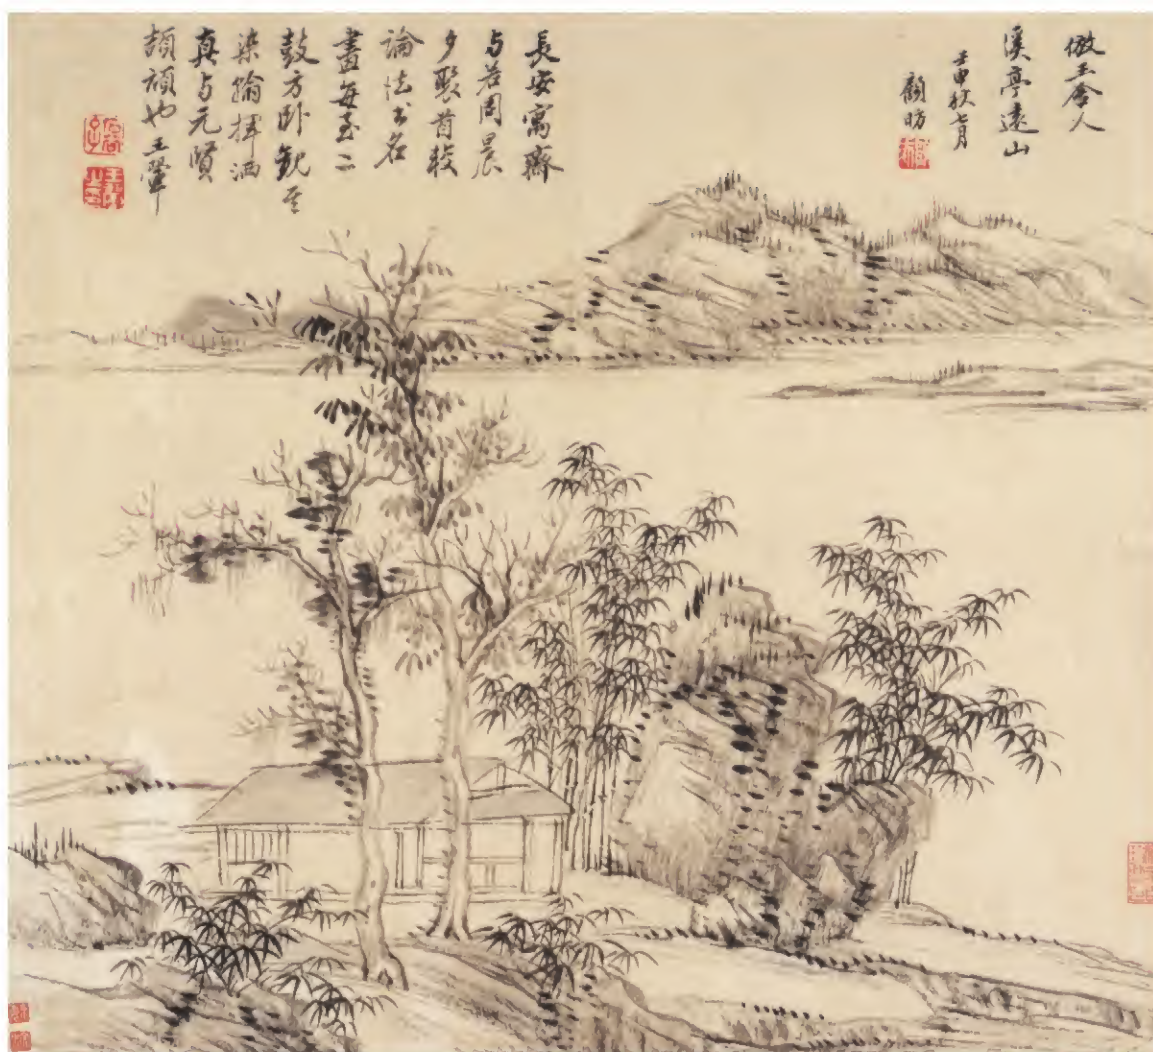 倣王舍人
溪亭遠山
壬申秋七月
顧昉
長安寓齋
与若周晨
夕聚首較
論法书名
畫每至二
鼓方卧觀其
染翰揮洒
真与元賢
頡頏也王翬